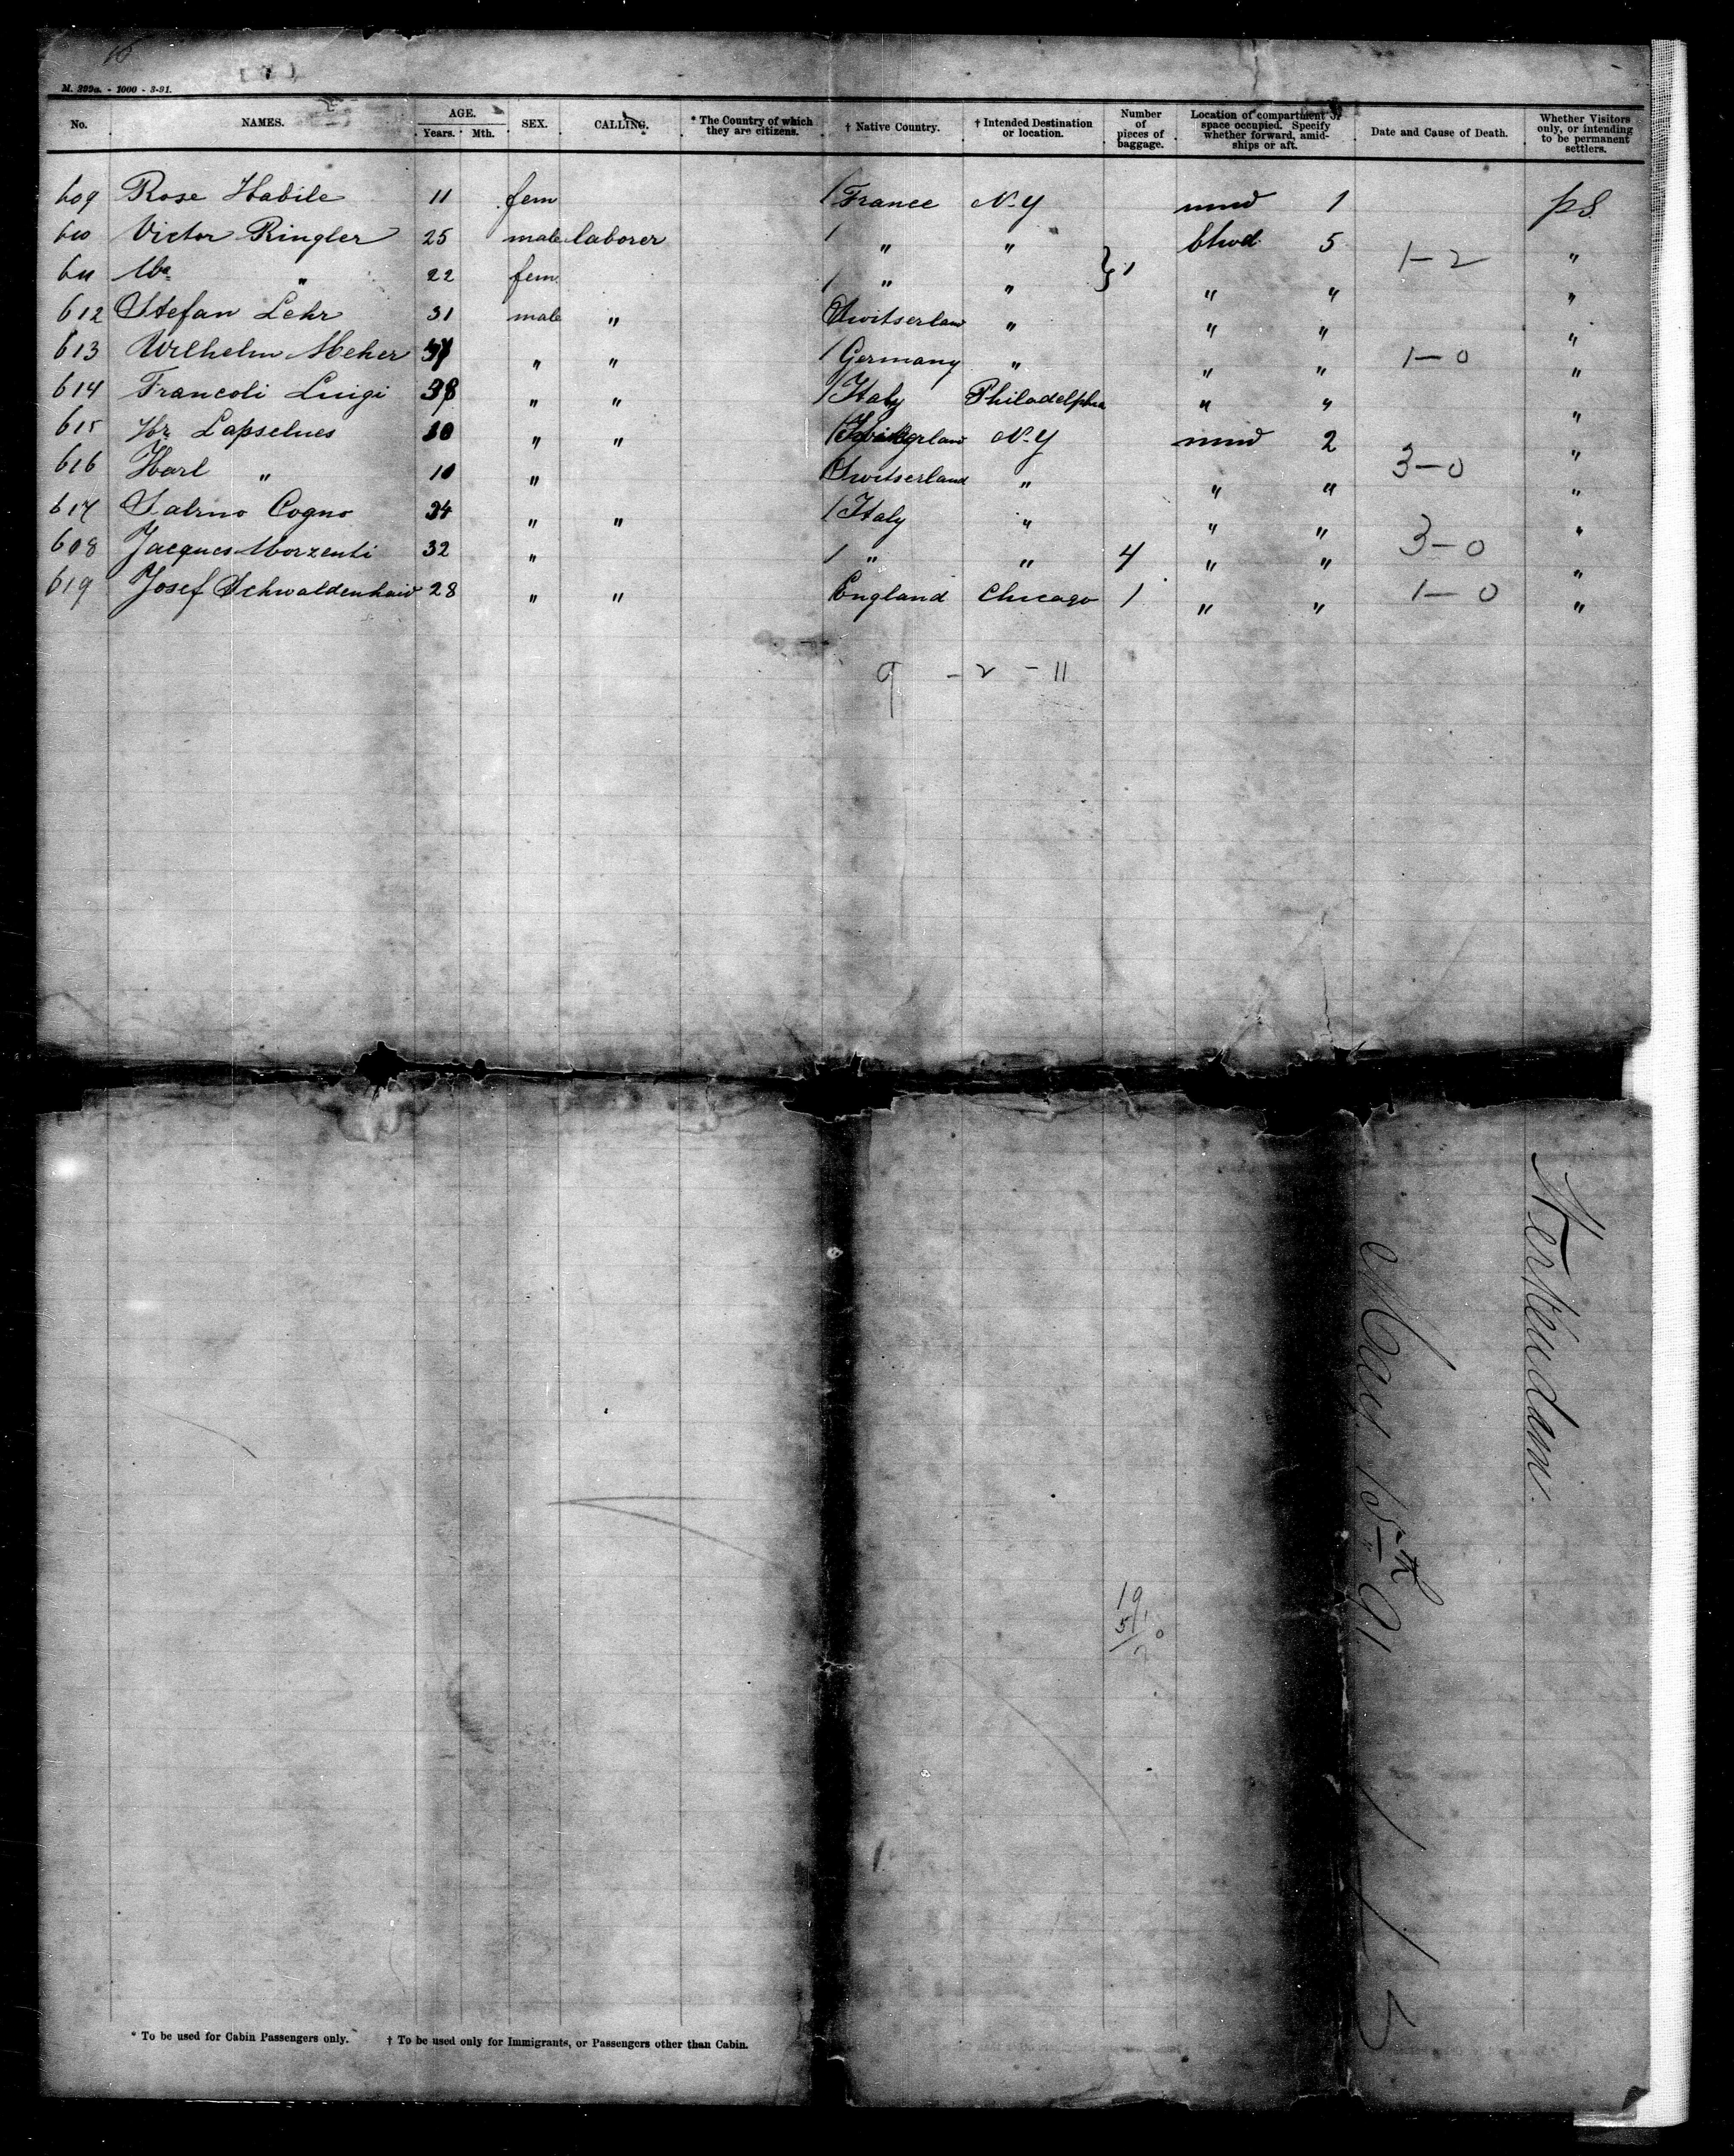 M. 299a. - 1000 - 3-91.
No. NAMES. AGE. Years. Mth. SEX. CALLING. * The Country of which they are citizens. † Native Country. † Intended Destination or location. Number of pieces of baggage. Location of compartment or space occupied. Specify whether forward, amidships or aft. Date and Cause of Death. Whether Visitors only, or intending to be permanent settlers.
609 Rose Habile 11 fem / France N-Y 1 p s.
610 Victor Ringler 25 male laborer / " " 5 1-2 "
611 " 22 fem / " " } 1 " " "
612 Stefan Lehr 31 male " Switserlan " " " "
613 Wilhelm Meher " " / Germany " " " 1-0 "
614 Francoli Luigi 38 " " / Italy Philadelphia " " "
615 Hr Lapselues 10 " " / N-Y 2 "
616 Karl " 10 " Switserland " " " 3-0 "
617 Salvino Cogno 34 " " / Italy " " " "
608 Jacques Morzenti 32 " / " " 4 " " 3-0 "
619 Josef Schwaldenhaid 28 " " England Chicago 1 " " 1-0 "
9 - 2 - 11
Werkendam.
May 15th 91
19
51
* To be used for Cabin Passengers only. † To be used only for Immigrants, or Passengers other than Cabin.